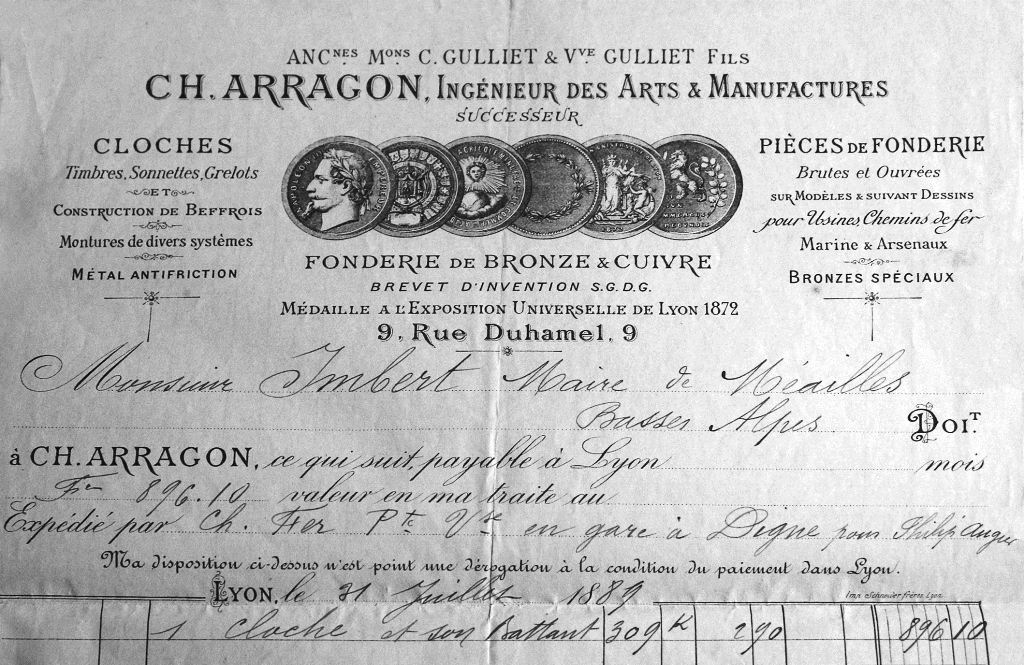 ANC.NES MONS C. GULLIET & VVE GULLIET FILS
CH. ARRAGON, INGÉNIEUR DES ARTS & MANUFACTURES
SUCCESSEUR
CLOCHES
Timbres, Sonnettes, Grelots
ET
CONSTRUCTION DE BEFFROIS
Montures de divers systèmes
MÉTAL ANTIFRICTION
NAPOLEON III EMPEREUR
PIÈCES DE FONDERIE
Brutes et Ouvrées
SUR MODÈLES & SUIVANT DESSINS
pour Usines, Chemins de fer
Marine & Arsenaux
BRONZES SPÉCIAUX
FONDERIE DE BRONZE & CUIVRE
BREVET D'INVENTION S.G.D.G.
MÉDAILLE A L'EXPOSITION UNIVERSELLE DE LYON 1872
9, Rue Duhamel, 9
Monsieur Imbert Maire de Méailles
Basses Alpes DOIT.
à CH. ARRAGON, ce qui suit, payable à Lyon mois
Fr 896.10 valeur en ma traite au
Expédié par Ch. Fer Pte Vse en gare à Digne pour Philip Auguste
Ma disposition ci-dessus n'est point une dérogation à la condition du paiement dans Lyon.
LYON, le 31 Juillet 1889
Imp. Schneider frères Lyon
1 Cloche et son Battant 309 K 290 896 10